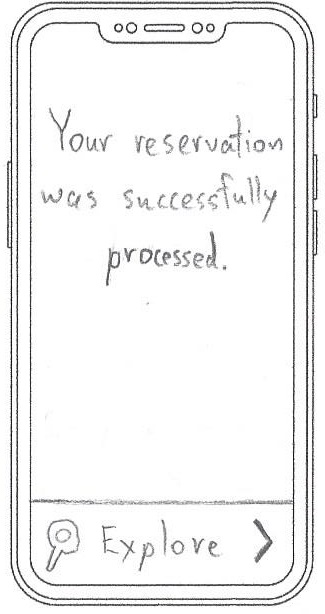 Your reservation
was successfully
processed.
Explore